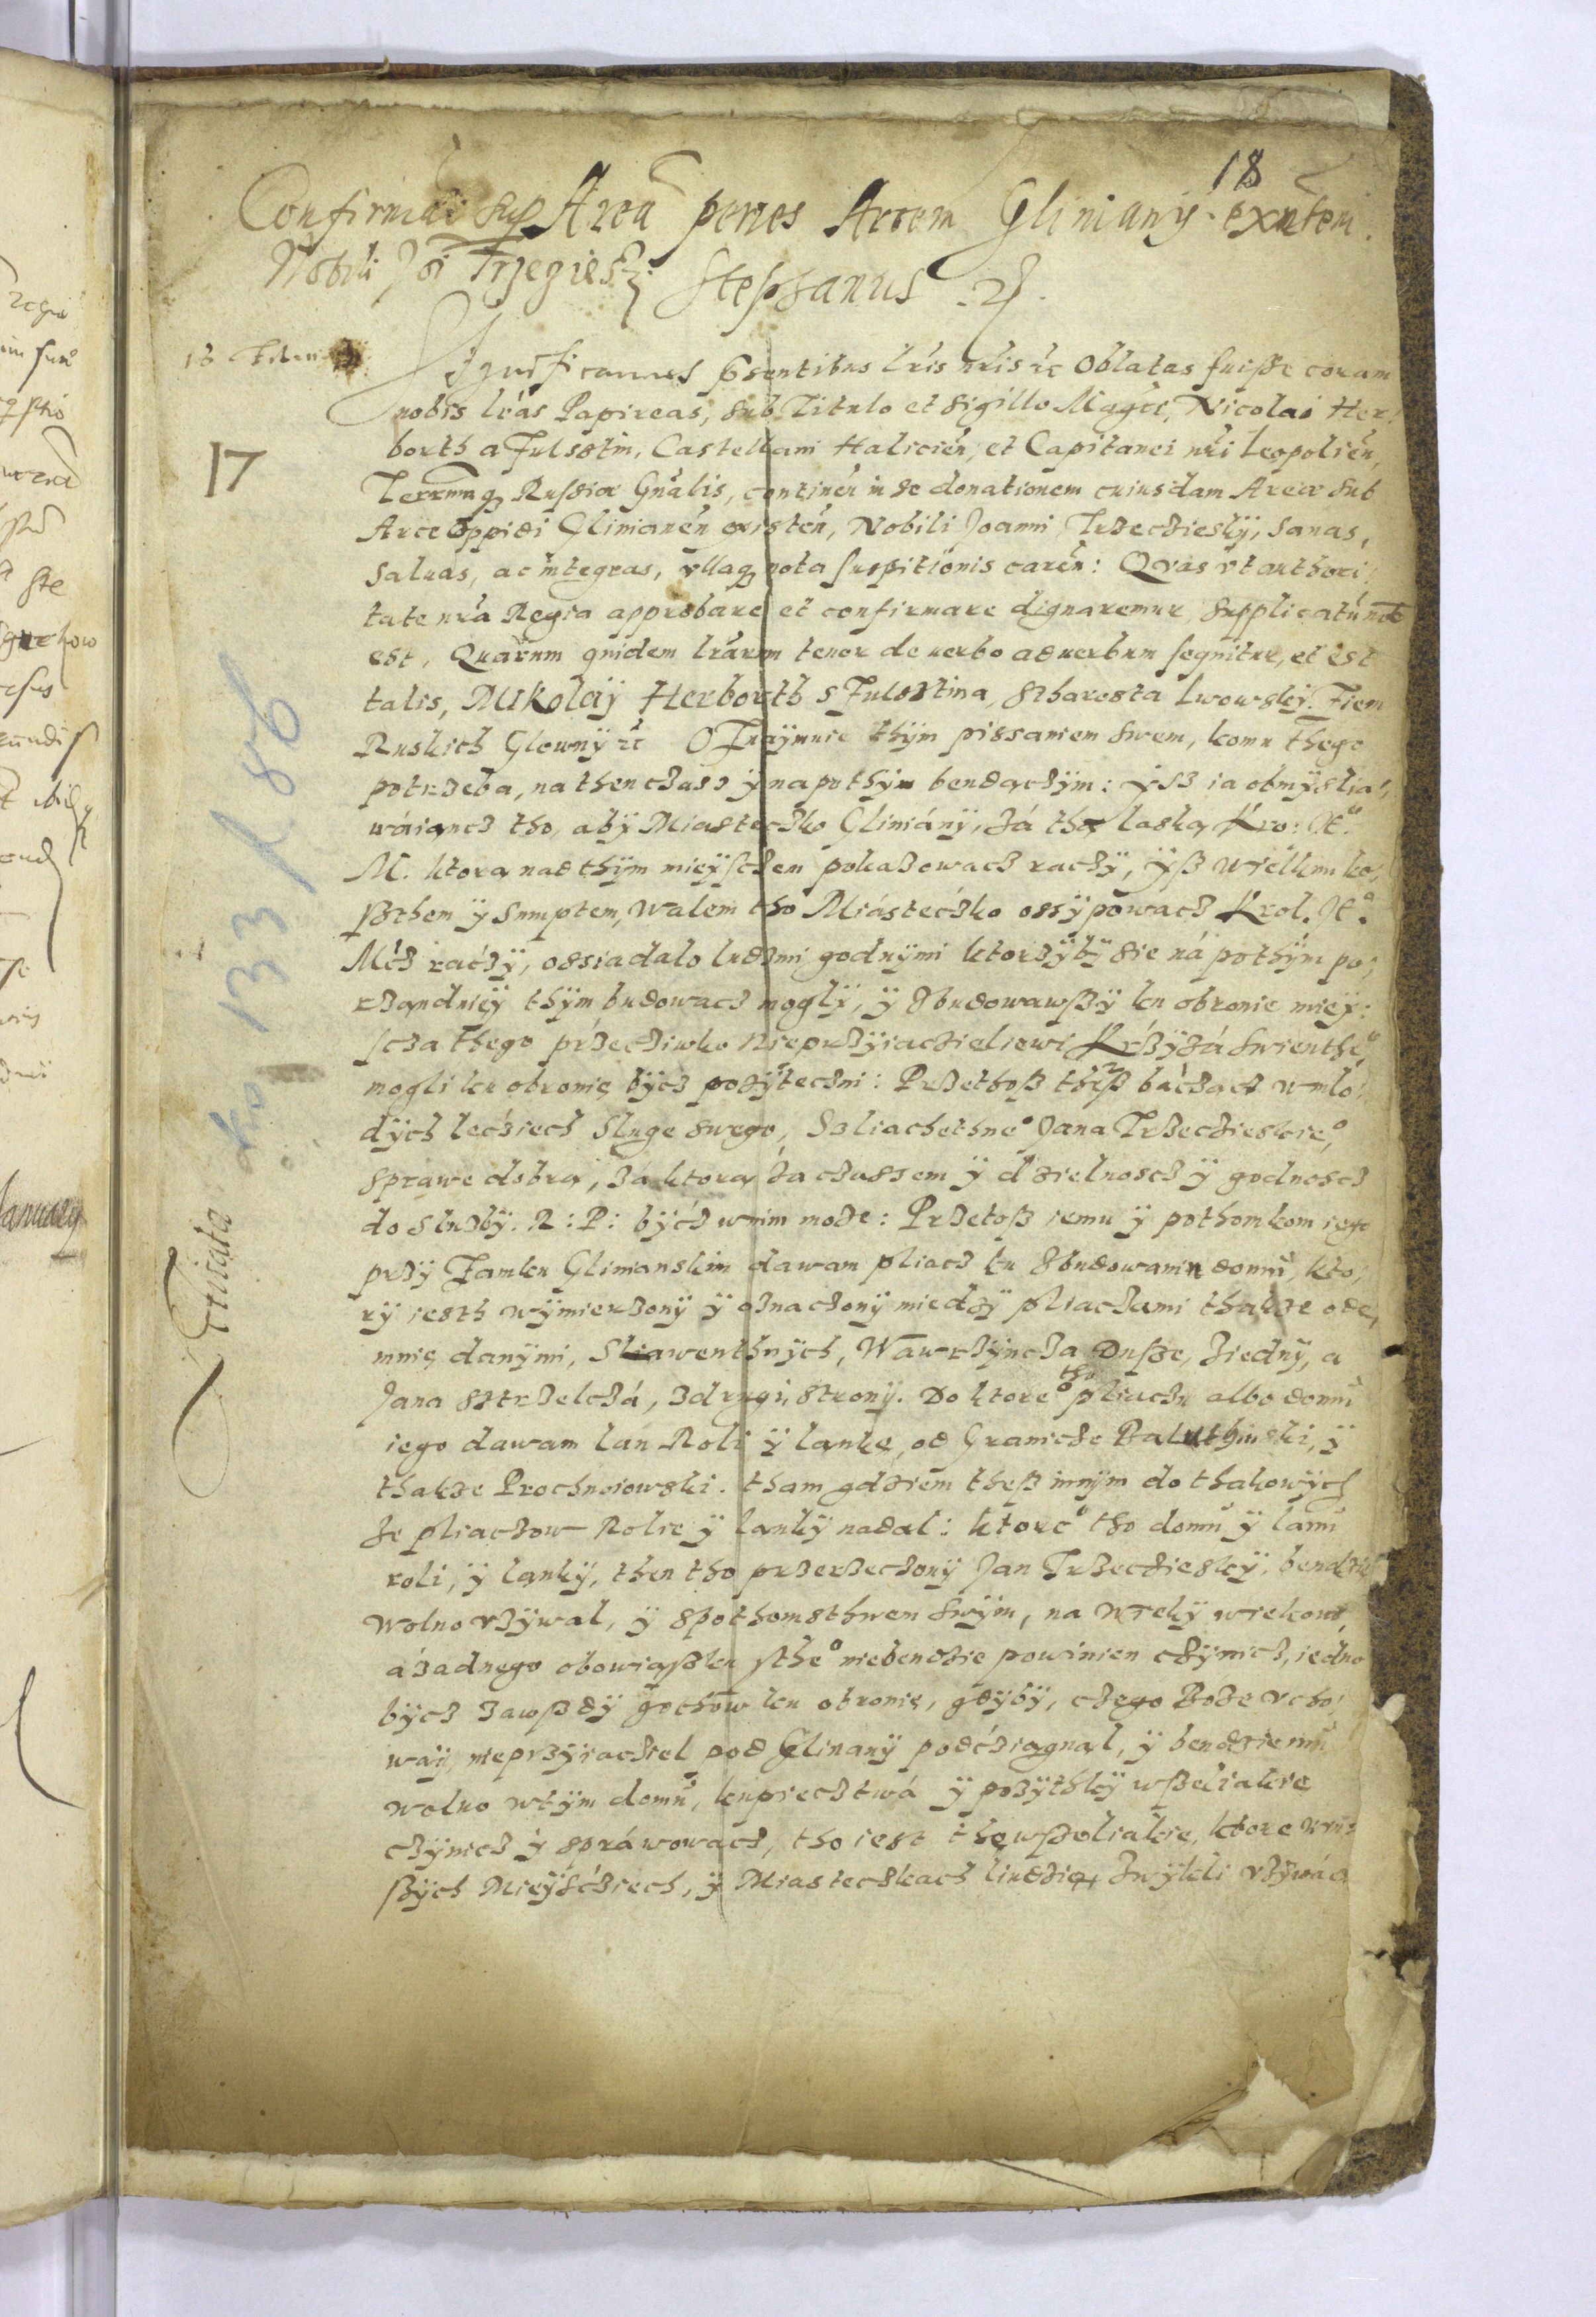 18
Confirmaõ sup Areã penes Arcem Gliniany exñtem.
Nobili Joi Trzecieski
Stephanus
18
17
Significamus pñtibus lris nris &c Oblatas fuisse coram
nobis lrás Papireas, sub Titulo et sigillo Magci Nicolai Her,
borth a Fulsstin, Castellani Halicieñ, et Capitanei nri Leopolieñ,
Terrarumq Russiæ Gnalis, continen in se donationem cuiusdam Areæ sub
Arce oppidi Glinianeñ existeñ, Nobili Joanni Trzecziesky, sanas,
saluas, ac integras, vllaq nota suspitionis careñ: Qvas vt authori,
tate nrá Regia approbare et confirmare dignaremur supplicatũ nob
est, Quarum quidem lrarum tenor de uerbo ad uerbum sequitur, et est
talis, Mikolay Herborth s Fulsstina, stharosta Lwowsky. Ziem
Ruskich Glowny &c Oznaymuie thym pissaniem swem, komu thego
potrzeba, na then czass y napothym bendaczym: ysz ia obmyslia,
waiancz tho, aby Miasteczko Gliniány, zá tha laską Kro: Je°
M. ktora nad thym mieysczem pokazowacz raczy, ysz wielkim ko,
sthem y sumptem, walem tho Miásteczko ossypowacz Krol. Je°
Mcz raczy, ossiadalo ludzmi godnymi ktorzyby sie ná pothym po,
rzandniey thym budowacz mogly, y zbudowawszy ku obronie miey:
scza thego przecziwko Nieprzyiacielowi Krzyzá swienthe°
mogli ku obronie bycz pozyteczni: Przethosz thesz baczącz w mlo,
dych lecziech sluge swego, Szliachethne° Jana Trzeczieskie°,
sprawe dobrą, zá ktorą za czassem y dzielnoscz y godnoscz
do sluzby. R: P: bycz w nim moze: Przetosz iemu y pothomkom iego
przy Zamku Glinianskim dawam pliacz ku zbudowaniu domu, kto,
ry iesth wymierzony y oznaczony miedzy pliaczami thakze ode,
mnie danymi, Sliawenthnych, Wawrzyncza Dusze, ziedny, a
Jana sztrzelczá, z drugi strony. Do ktore° tho pliaczu albo domu
iego dawam lan Roli y lanke, od Granicze Baluthinski, y
thakze Prochniowski. tham gdziem thesz innym do thakowych
ze pliaczow Rolie y lanky nadal: ktore° tho domu y lanu
roli, y lanky, then tho przerzeczony Jan Trzeciesky, bendzie
wolno vzywal, y spothomsthwem swym, na wieky wiekow,
á zadnego obowiaszku sthe° niebendzie powinien czynicz, iedno
bycz zawszdy gothow ku obronie, gdyby, czego Boze vcho,
way, nieprzyiaciel pod Glinany podcziągnal, y bendzie mu
wolno w tym domu, kupiecztwá y pozythky wszeliakie
czynicz y spráwowacz, tho iest the wszeliakie, ktore w in,
szych Mieyscziech, y Miasteczkach liudzie zwykli vzywác
133 / 86